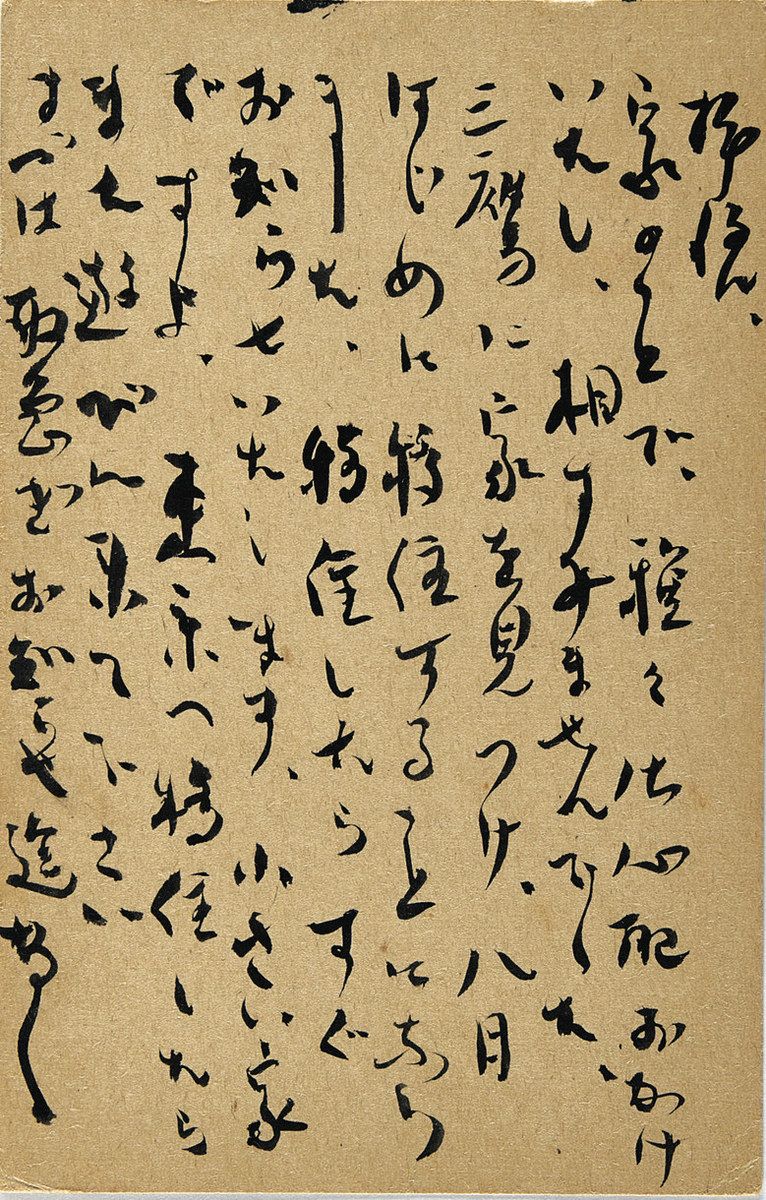 拝復、
家のことで、種々御心配おかけ
いたし、相すみませんでした、
三鷹に家を見つけ、八月
はじめに移住することになり
ました、移住したらすぐ
お知らせいたします、小さい家
ですよ、東京へ移住したら
また遊びに来て下さい
まづは取急ぎお知らせ迄